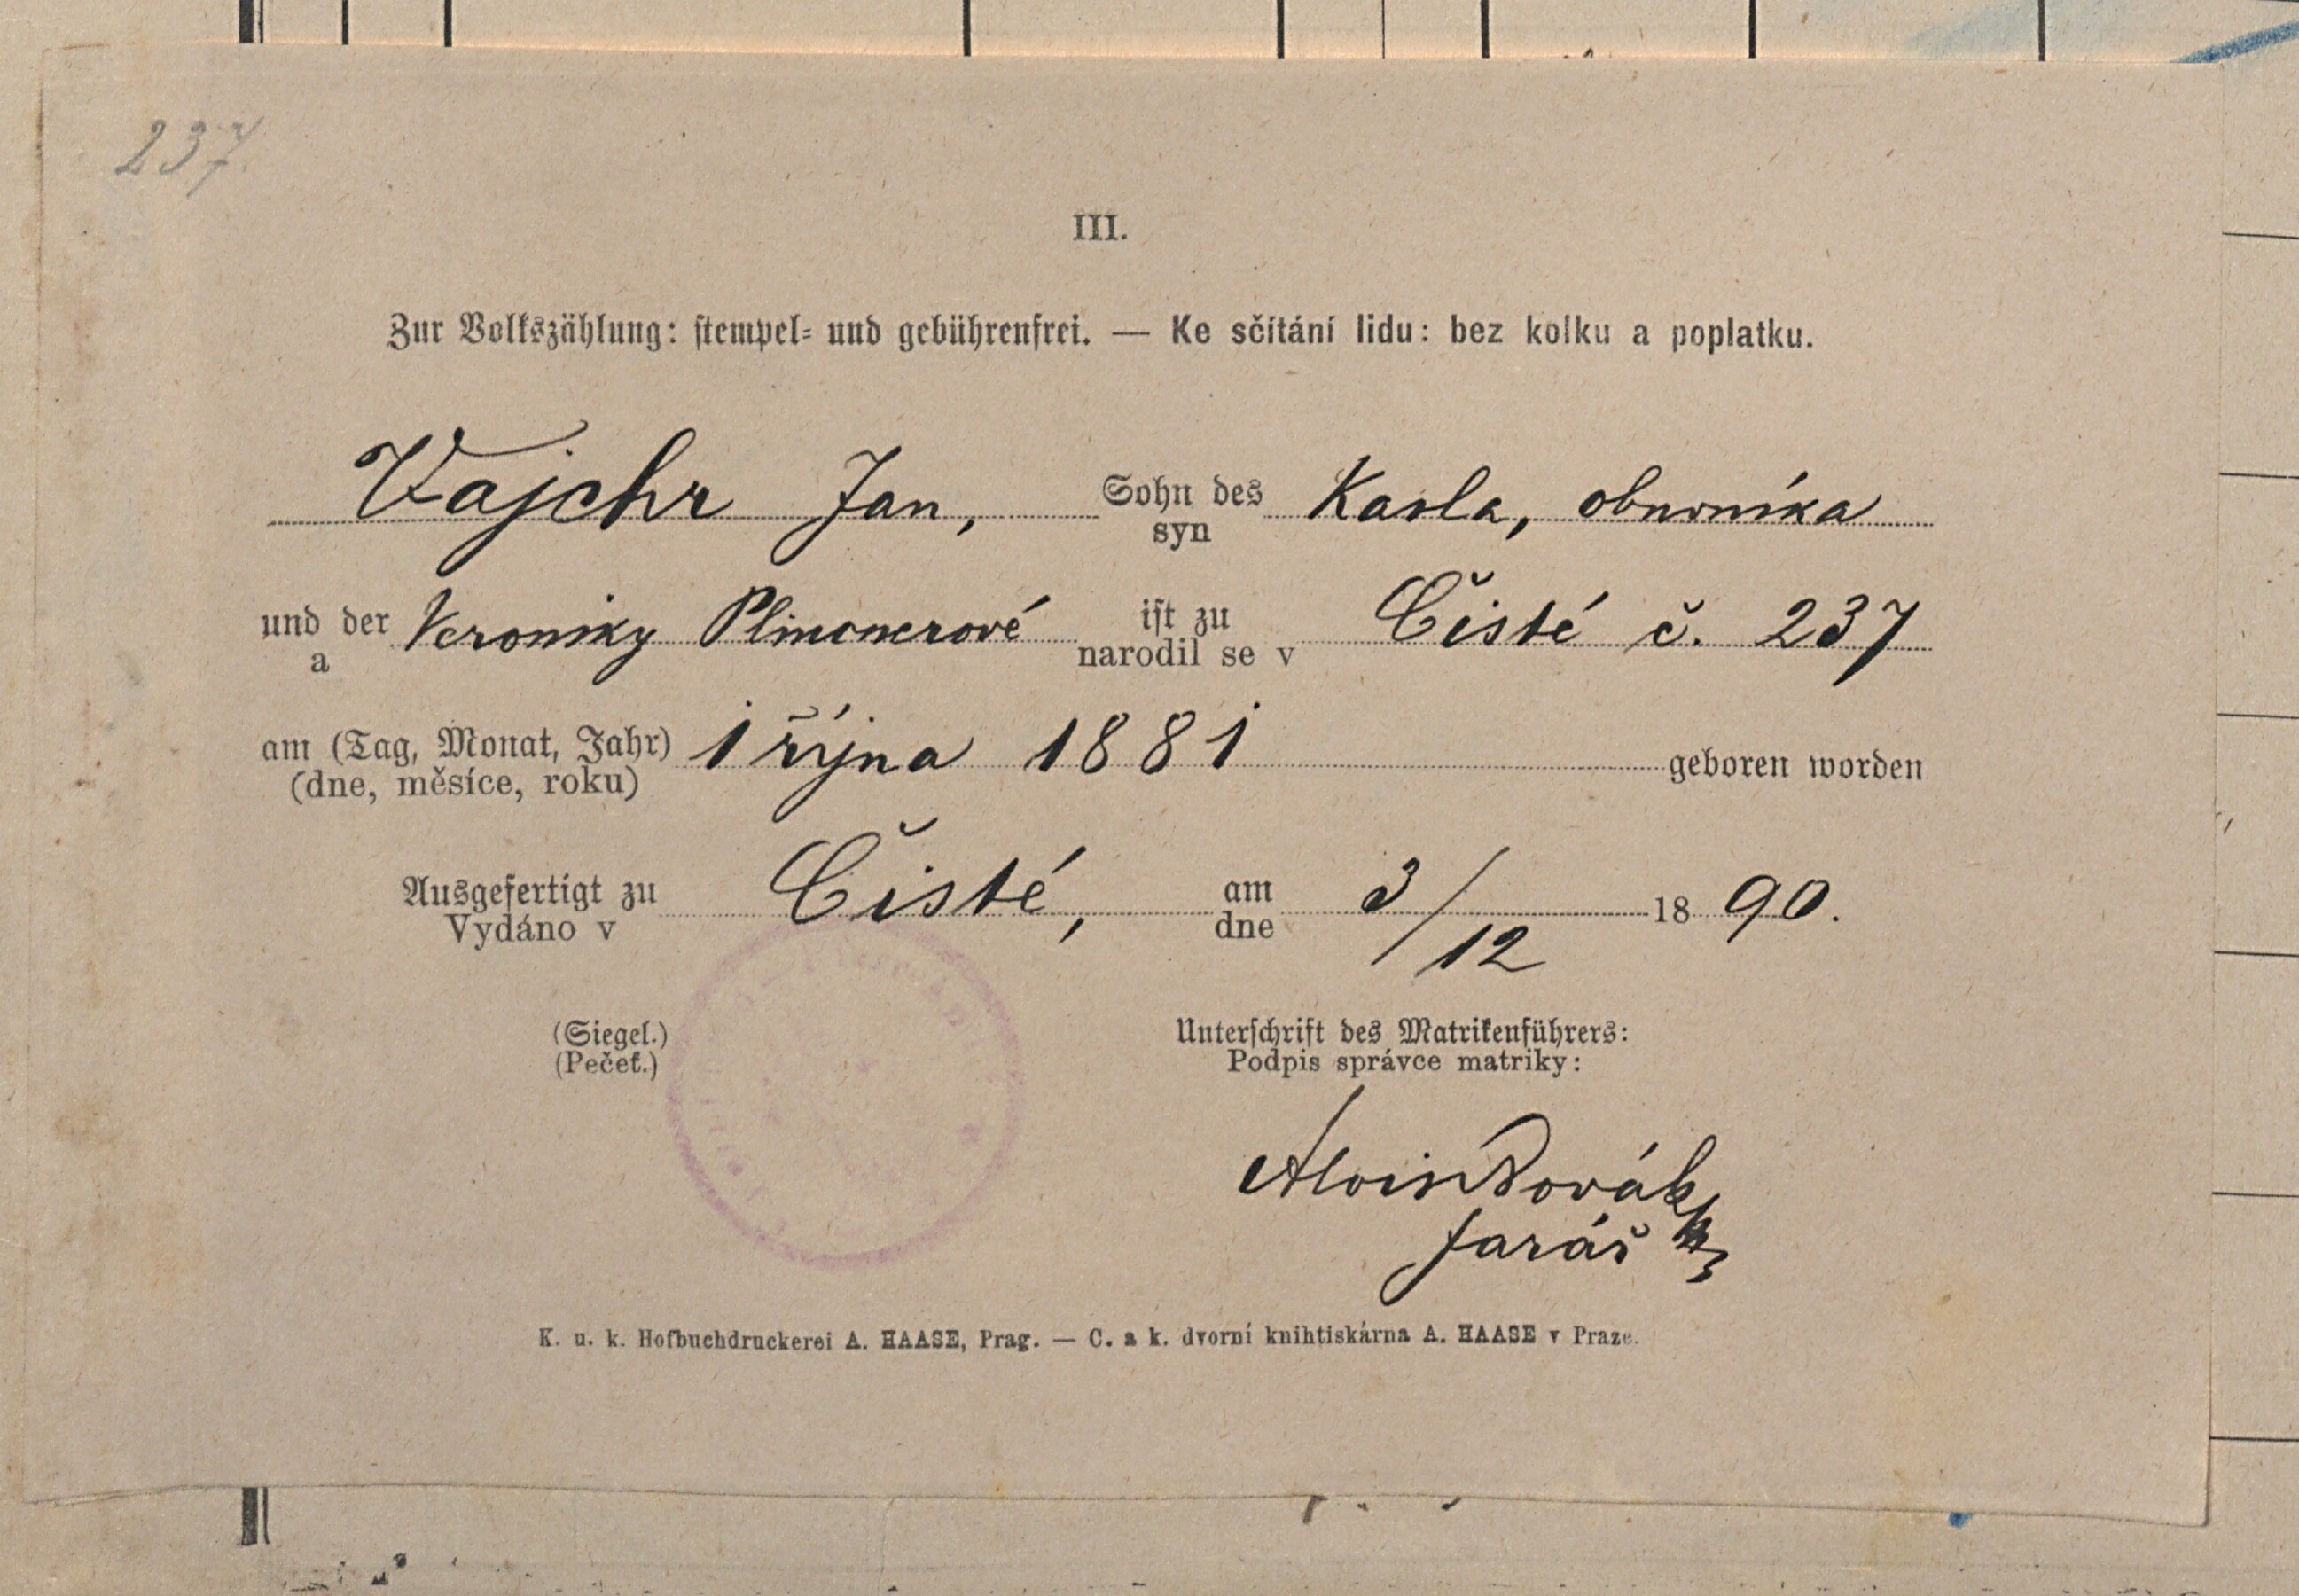 237.
III.
Zur Volkszählung: stempel- und gebührenfrei. — Ke sčítání lidu: bez kolku a poplatku.
Vajchr Jan, Sohn des Karla, obuvníka
syn
und der Veroniky ist zu Čisté č. 237
a narodil se v
am (Tag, Monat, Jahr) 1 října 1881 geboren worden
(dne, měsíce, roku)
Ausgefertigt zu Čisté, am 3/12 1890.
Vydáno v dne
(Siegel.) Unterschrift des Matrikenführers:
(Pečeť.) Podpis správce matriky:
Alois
farář
K. u. k. Hofbuchdruckerei A. HAASE, Prag. — C. a k. dvorní knihtiskárna A. HAASE v Praze.